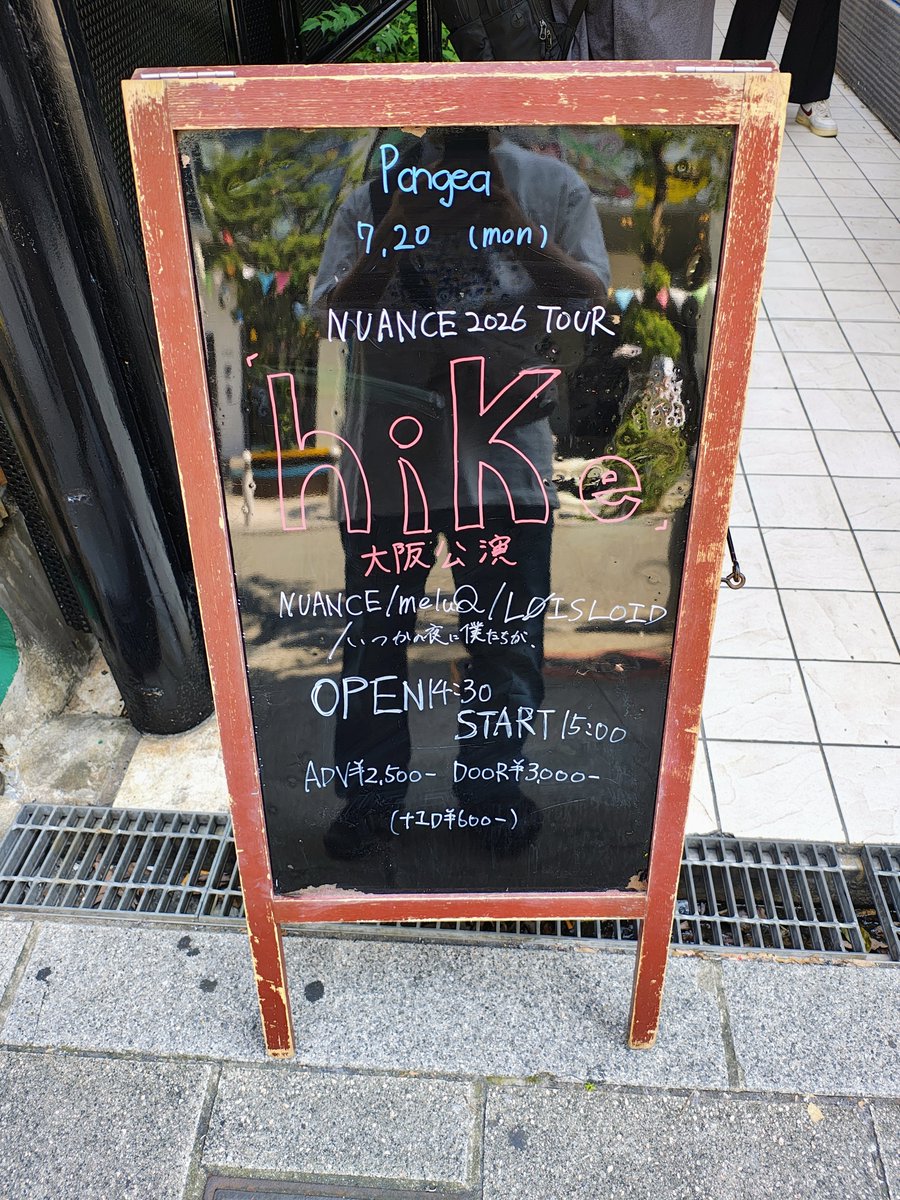 Pangea
7,20 (mon)
NUANCE 2026 TOUR
「hiKe」
大阪公演
NUANCE/meluQ/LØISLOID
/いつかの夜に僕たちが、
OPEN14:30
START15:00
ADV¥2,500- DOOR¥3,000-
(+1D¥600-)